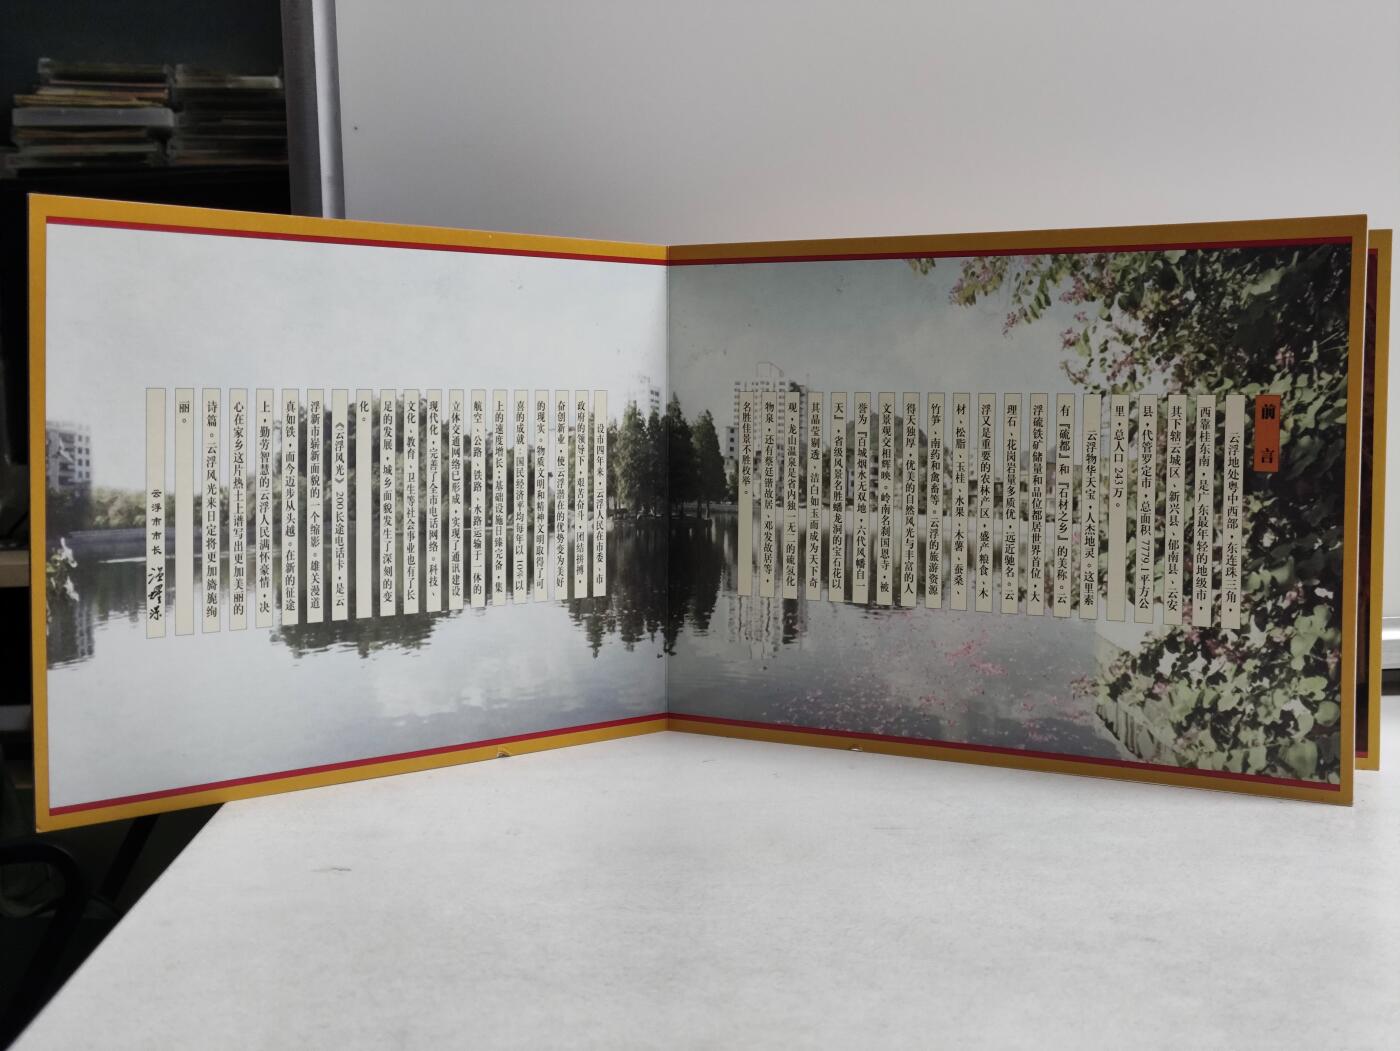 前言
云浮地处粤中西部，东连珠三角，
西靠桂东南，是广东最年轻的地级市，
其下辖云城区、新兴县、郁南县、云安
县，代管罗定市，总面积7779.1平方公
里，总人口243万。
云浮物华天宝，人杰地灵。这里素
有『硫都』和『石材之乡』的美称。云
浮硫铁矿储量和品位都居世界首位，大
理石、花岗岩量多质优，远近驰名。云
浮又是重要的农林产区，盛产粮食、木
材、松脂、玉桂、水果、木薯、蚕桑、
竹笋、南药和禽畜等。云浮的旅游资源
得天独厚，优美的自然风光与丰富的人
文景观交相辉映。岭南名刹国恩寺，被
誉为『百城烟水无双地，六代风幡自一
天』，省级风景名胜蟠龙洞的宝石花以
其晶莹剔透、洁白如玉而成为天下奇
观，龙山温泉是省内独一无二的硫氢化
物泉，还有蔡廷锴故居，邓发故居等，
名胜佳景不胜枚举。
设市四年来，云浮人民在市委、市
政府的领导下，艰苦奋斗，团结拼搏，
奋创新业，使云浮潜在的优势变为美好
的现实。物质文明和精神文明取得了可
喜的成就：国民经济平均每年以10%以
上的速度增长，基础设施日臻完备，集
航空、公路、铁路、水路运输于一体的
立体交通网络已形成，实现了通讯建设
现代化，完善了全市电话网络。科技、
文化、教育、卫生等社会事业也有了长
足的发展，城乡面貌发生了深刻的变
化。
《云浮风光》200长途电话卡，是云
浮新市崭新面貌的一个缩影。雄关漫道
真如铁，而今迈步从头越。在新的征途
上，勤劳智慧的云浮人民满怀豪情，决
心在家乡这片热土上谱写出更加美丽的
诗篇。云浮风光来日定将更加旖旎绚
丽。
云浮市市长